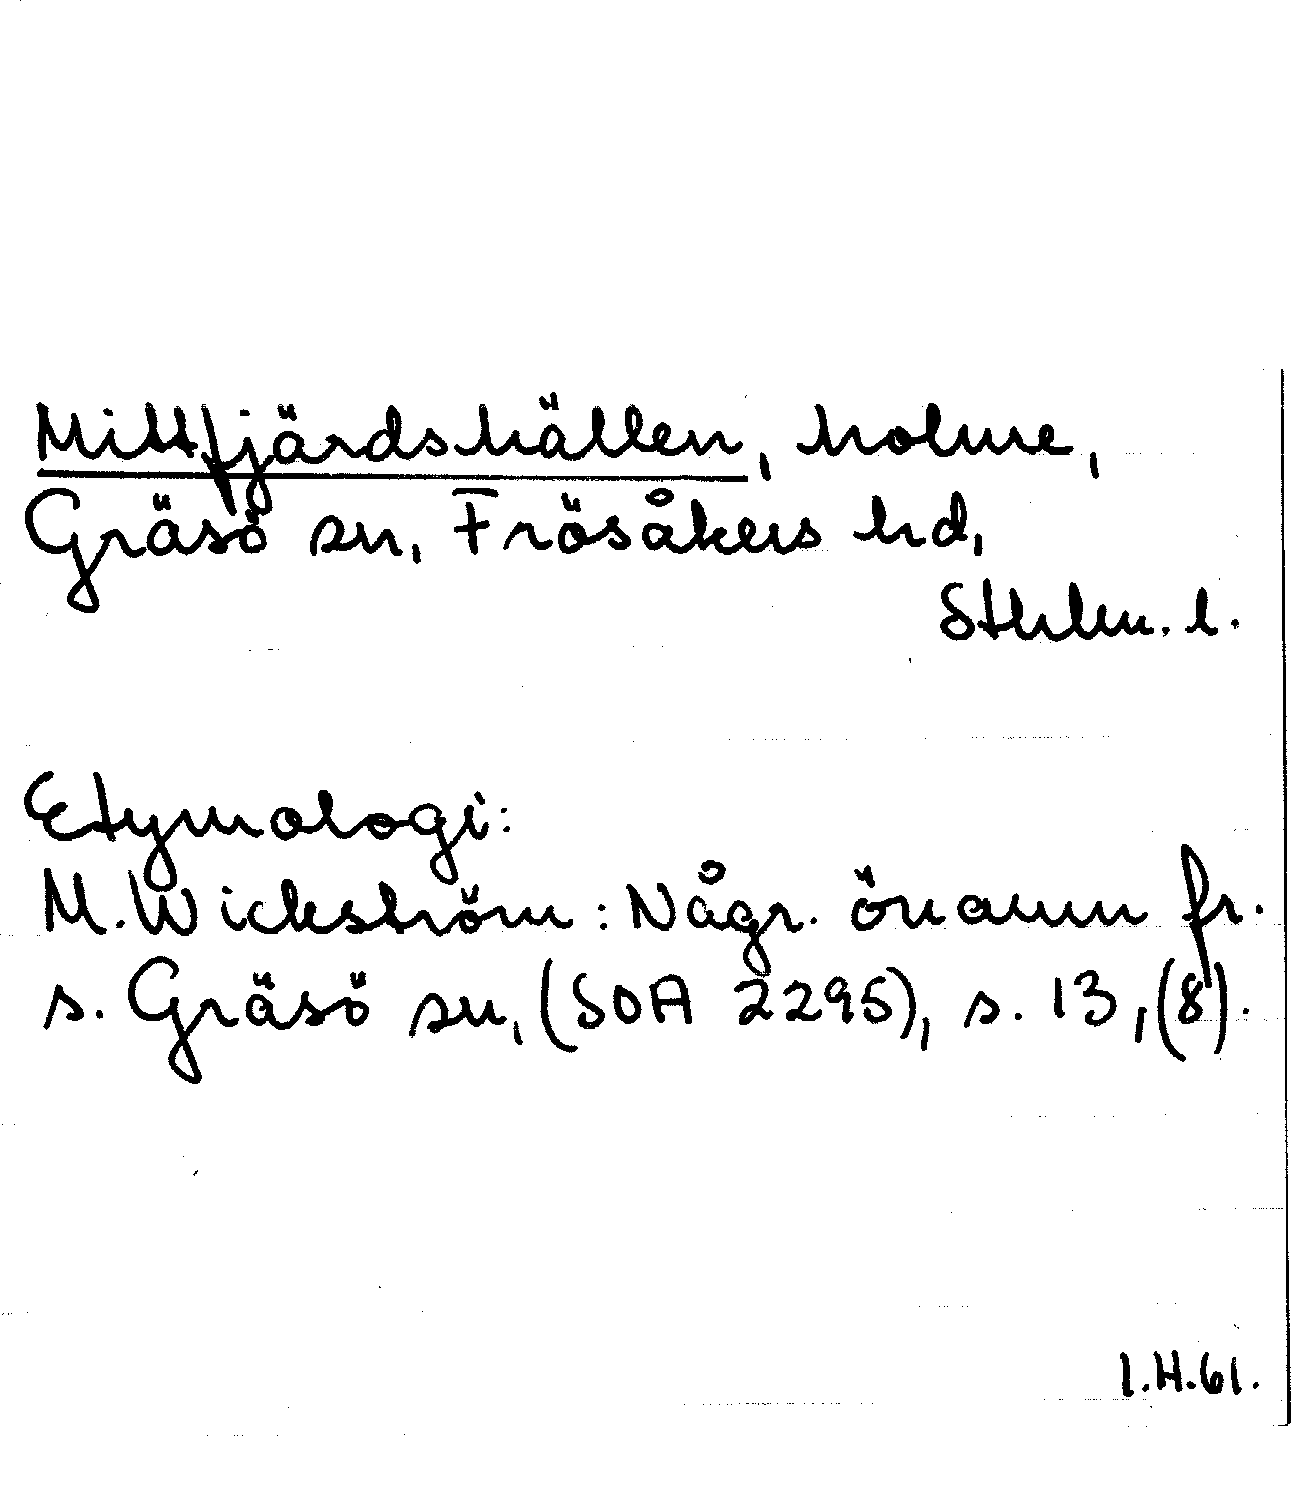 Mittfjärdshällen, holme,
Gräsö sn, Frösåkers hd,
Sthlm. l.
Etymologi:
M. Wickström: Någr. önamn fr.
s. Gräsö sn, (SOA 2295), s. 13, (8).
I.H.61.